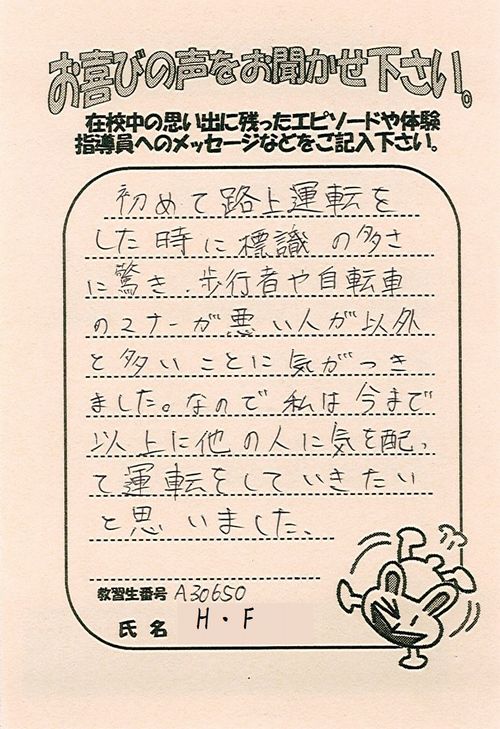 お喜びの声をお聞かせ下さい。
在校中の思い出に残ったエピソードや体験
指導員へのメッセージなどをご記入下さい。
初めて路上運転を
した時に標識の多さ
に驚き、歩行者や自転車
のマナーが悪い人が以外
と多いことに気がつき
ました。なので私は今まで
以上に他の人に気を配っ
て運転をしていきたい
と思いました。
教習生番号 A30650
氏名 H・F